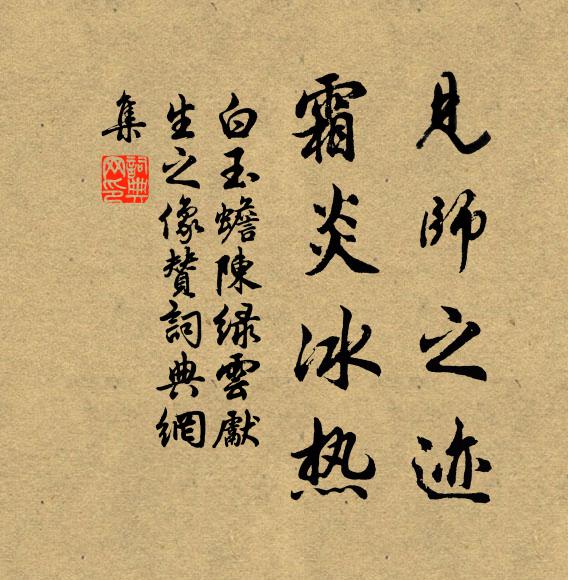 見師之迹
霜炎冰热
白玉蟾陳绿雲獻
生之像贊詞典網
集
詞典
网印